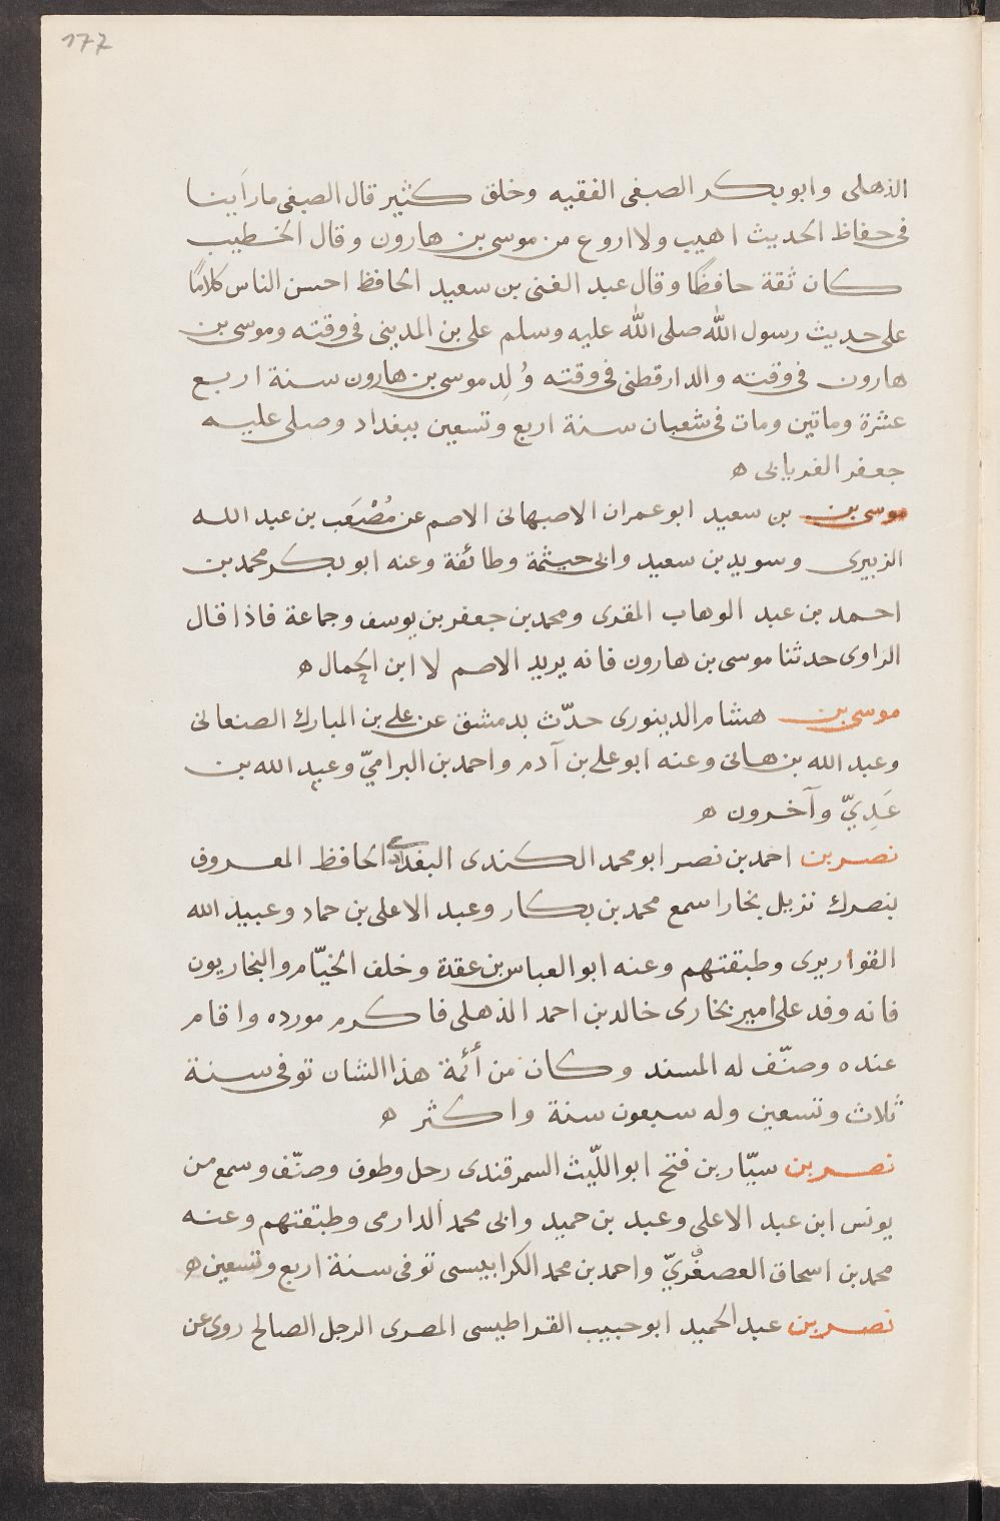 177
الذهلى وابو بكر الصبغى الفقيه وخلق كثير قال الصبغى ما رأينا
فى حفاظ الحديث اهيب ولا اروع من موسى بن هارون وقال الخطيب
كان ثقة حافظًا وقال عبد الغنى بن سعيد الحافظ احسن الناس كلامًا
على حديث رسول الله صلى الله عليه وسلم على بن المدينى فى وقته وموسى بن
هارون فى وقته والدارقطنى فى وقته وُلِد موسى بن هارون سنة اربع
عشرة وماتين ومات فى شعبان سنة اربع وتسعين ببغداد وصلى عليه
جعفر الفريابى ه
موسى بن بن سعيد ابو عمران الاصبهانى الاصم عن مُصْعَب بن عبد الله
الزبيرى وسويد بن سعيد وابى حيثمة وطائفة وعنه ابو بكر محمد بن
احمد بن عبد الوهاب المقرى ومحمد بن جعفر بن يوسف وجماعة فاذا قال
الراوى حدثنا موسى بن هارون فانه يريد الاصم لا ابن الحمال ه
موسى بن هشام الدينورى حدّث بدمشق عن على بن المبارك الصنعانى
وعبد الله بن هانى وعنه ابو على بن آدم واحمد بن البراميّ وعبد الله بن
عَدِيّ وآخرون ه
نصر بن احمد بن نصر ابو محمد الكندى البغدادى الحافظ المعروف
بنصرك نزيل بخارا سمع محمد بن بكار وعبد الاعلى بن حماد وعبيد الله
القواريرى وطبقتهم وعنه ابو العباس بن عقدة وخلف الخيّام والبخاريون
فانه وفد على امير بخارى خالد بن احمد الذهلى فاكرم مورده واقام
عنده وصنّف له المسند وكان من أئمة هذا الشان توفى سنة
ثلاث وتسعين وله سبعون سنة واكثر ه
نصر بن سيّار بن فتح ابو اللّيث السمرقندى رحل وطوف وصنّف وسمع من
يونس ابن عبد الاعلى وعبد بن حميد وابى محمد الدارمى وطبقتهم وعنه
محمد بن اسحاق العصفُريّ واحمد بن محمد الكرابيسى توفى سنة اربع وتسعين ه
نصر بن عبد الحميد ابو حبيب القراطيسى المصرى الرجل الصالح روى عن